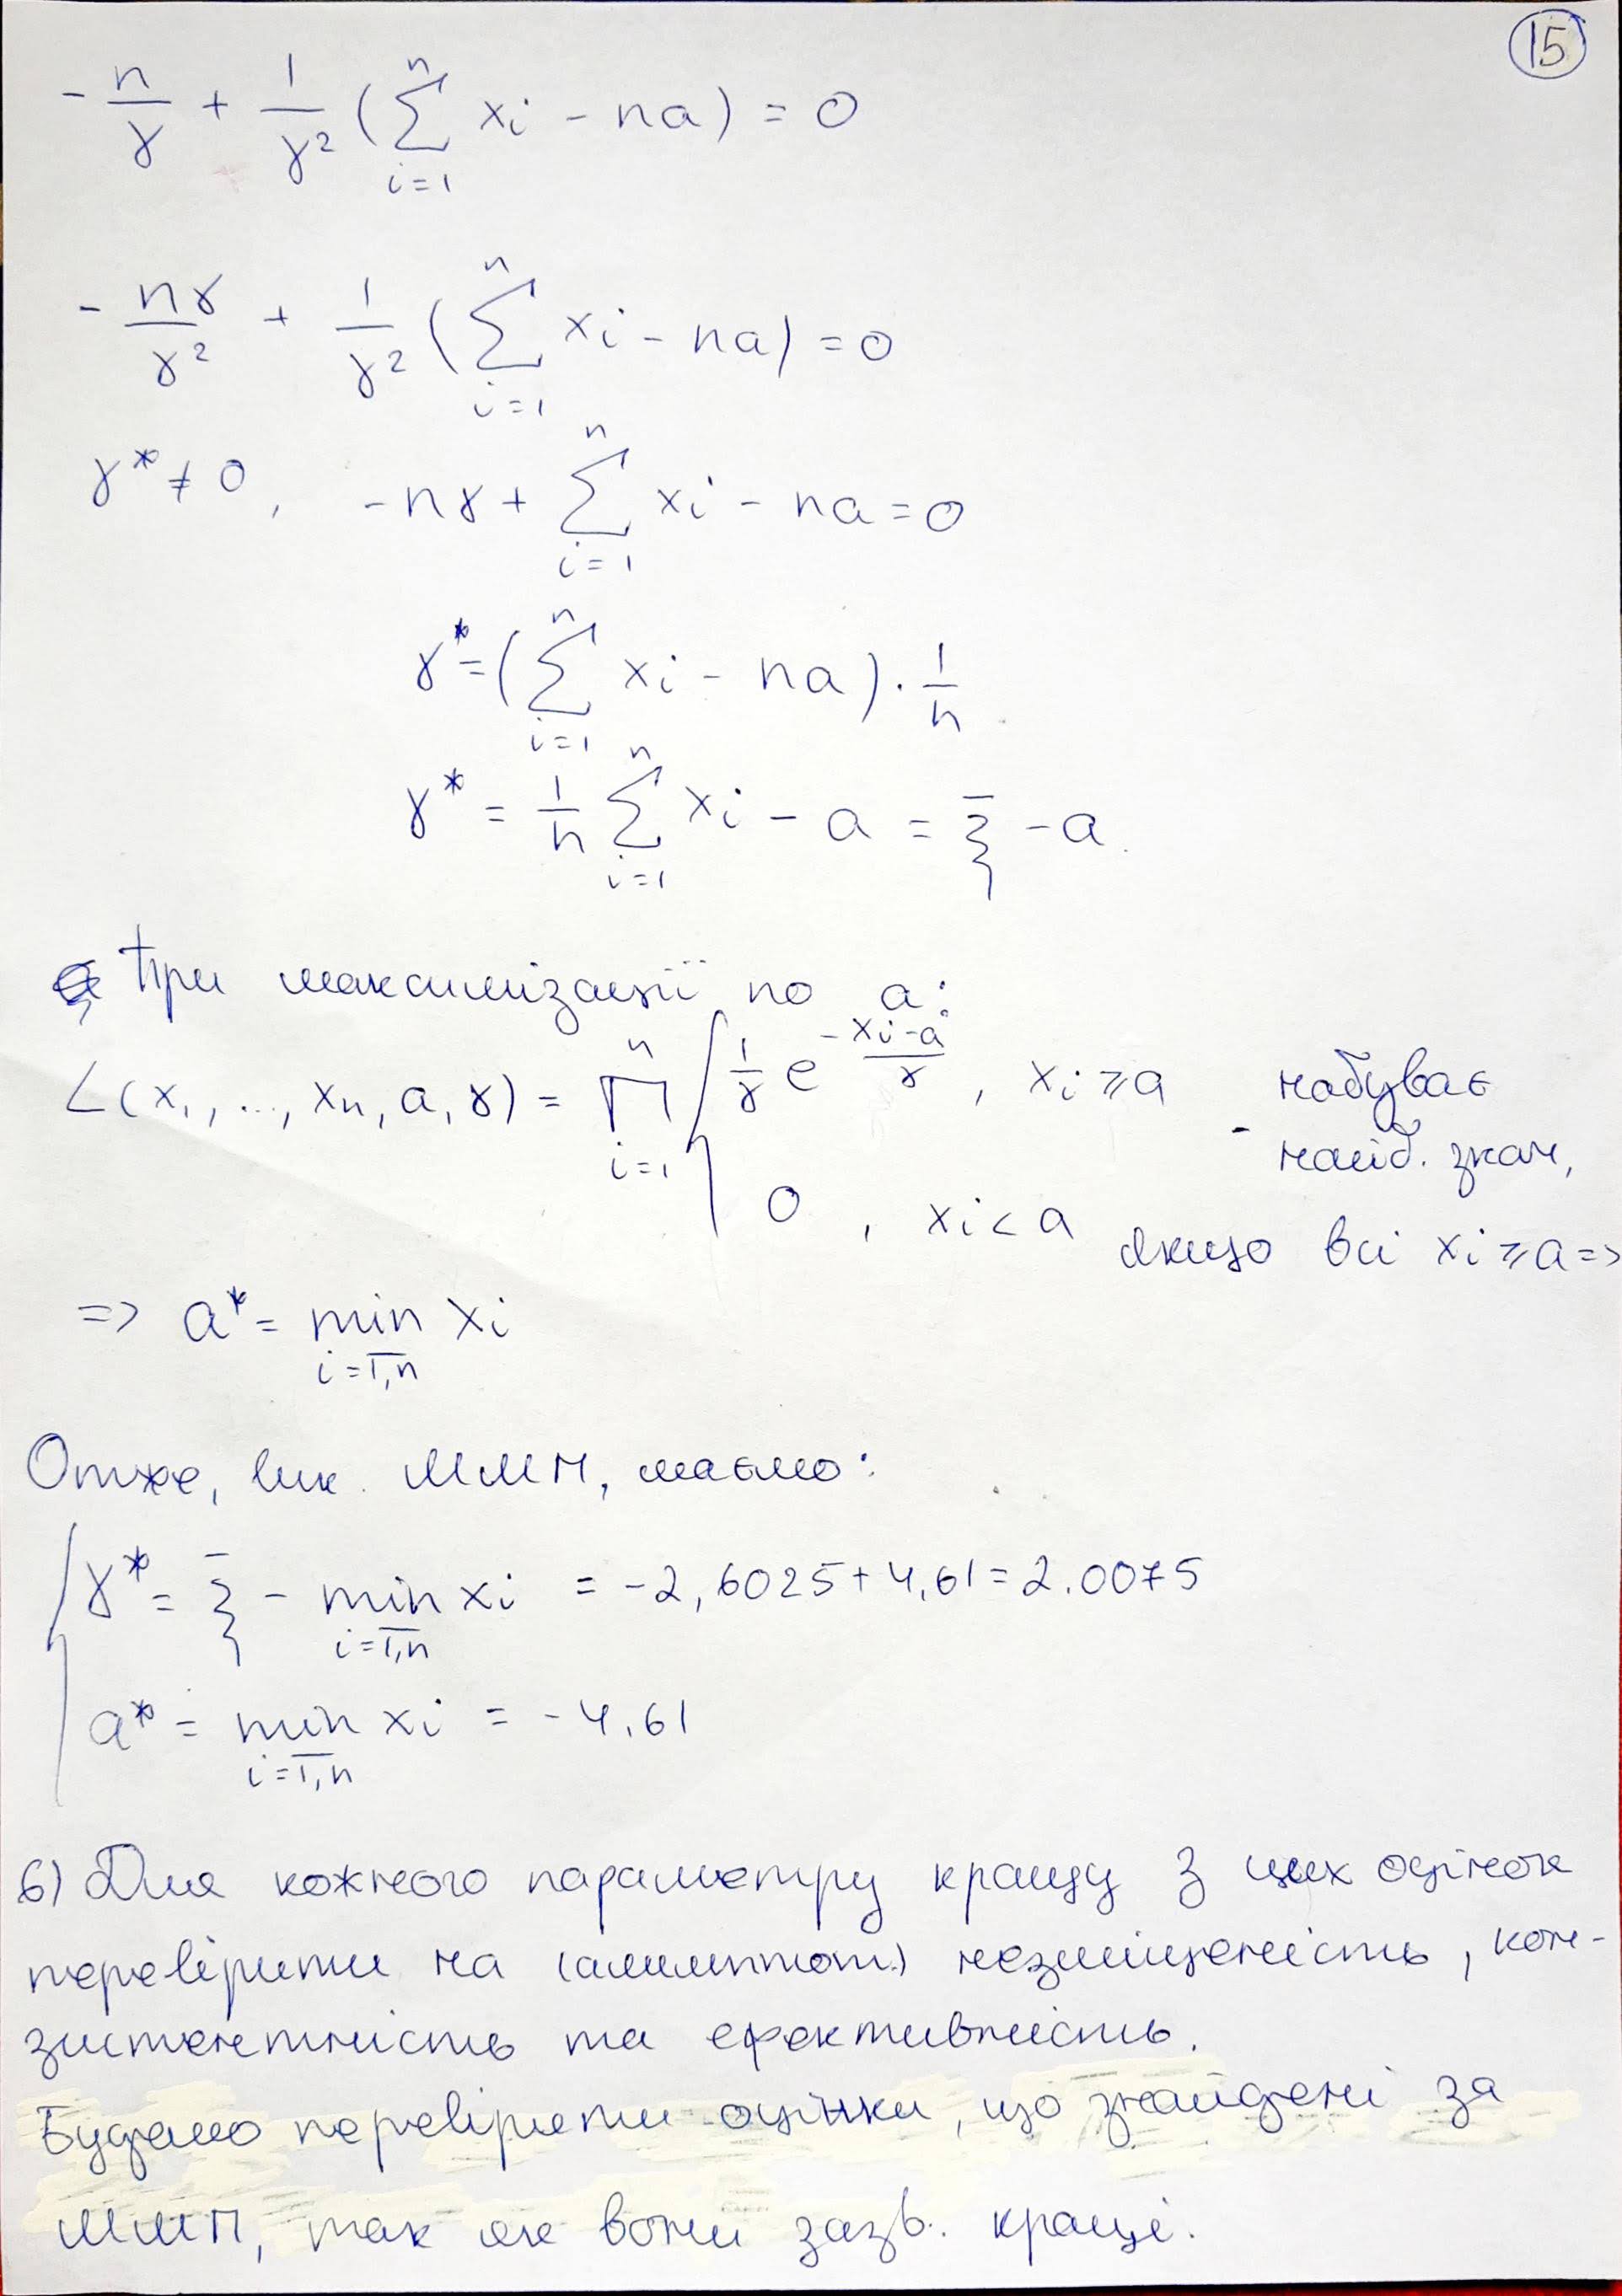 15
- n/γ + 1/γ² (∑_{i=1}^{n} xi - na) = 0
- nγ/γ² + 1/γ² (∑_{i=1}^{n} xi - na) = 0
γ* ≠ 0, -nγ + ∑_{i=1}^{n} xi - na = 0
γ* = (∑_{i=1}^{n} xi - na) · 1/n
γ* = 1/n ∑_{i=1}^{n} xi - a = ξ̄ - a
При максимізації по a:
L(x₁, ..., xn, a, γ) = ∏_{i=1}^{n} { 1/γ e^{-(xi-a)/γ}, xi ⩾ a - набуває
найб. знач,
0, xi < a якщо всі xi ⩾ a =>
=> a* = min_{i=1,n} xi
Отже, вик. ММП, маємо:
{ γ* = ξ̄ - min_{i=1,n} xi = -2,6025 + 4,61 = 2.0075
a* = min_{i=1,n} xi = -4.61
6) Для кожного параметру кращу з цих оцінок
перевірити на (асимптот.) незміщеність, кон-
зистентність та ефективність.
Будемо перевіряти оцінки, що знайдені за
ММП, так як вони зазв. кращі.